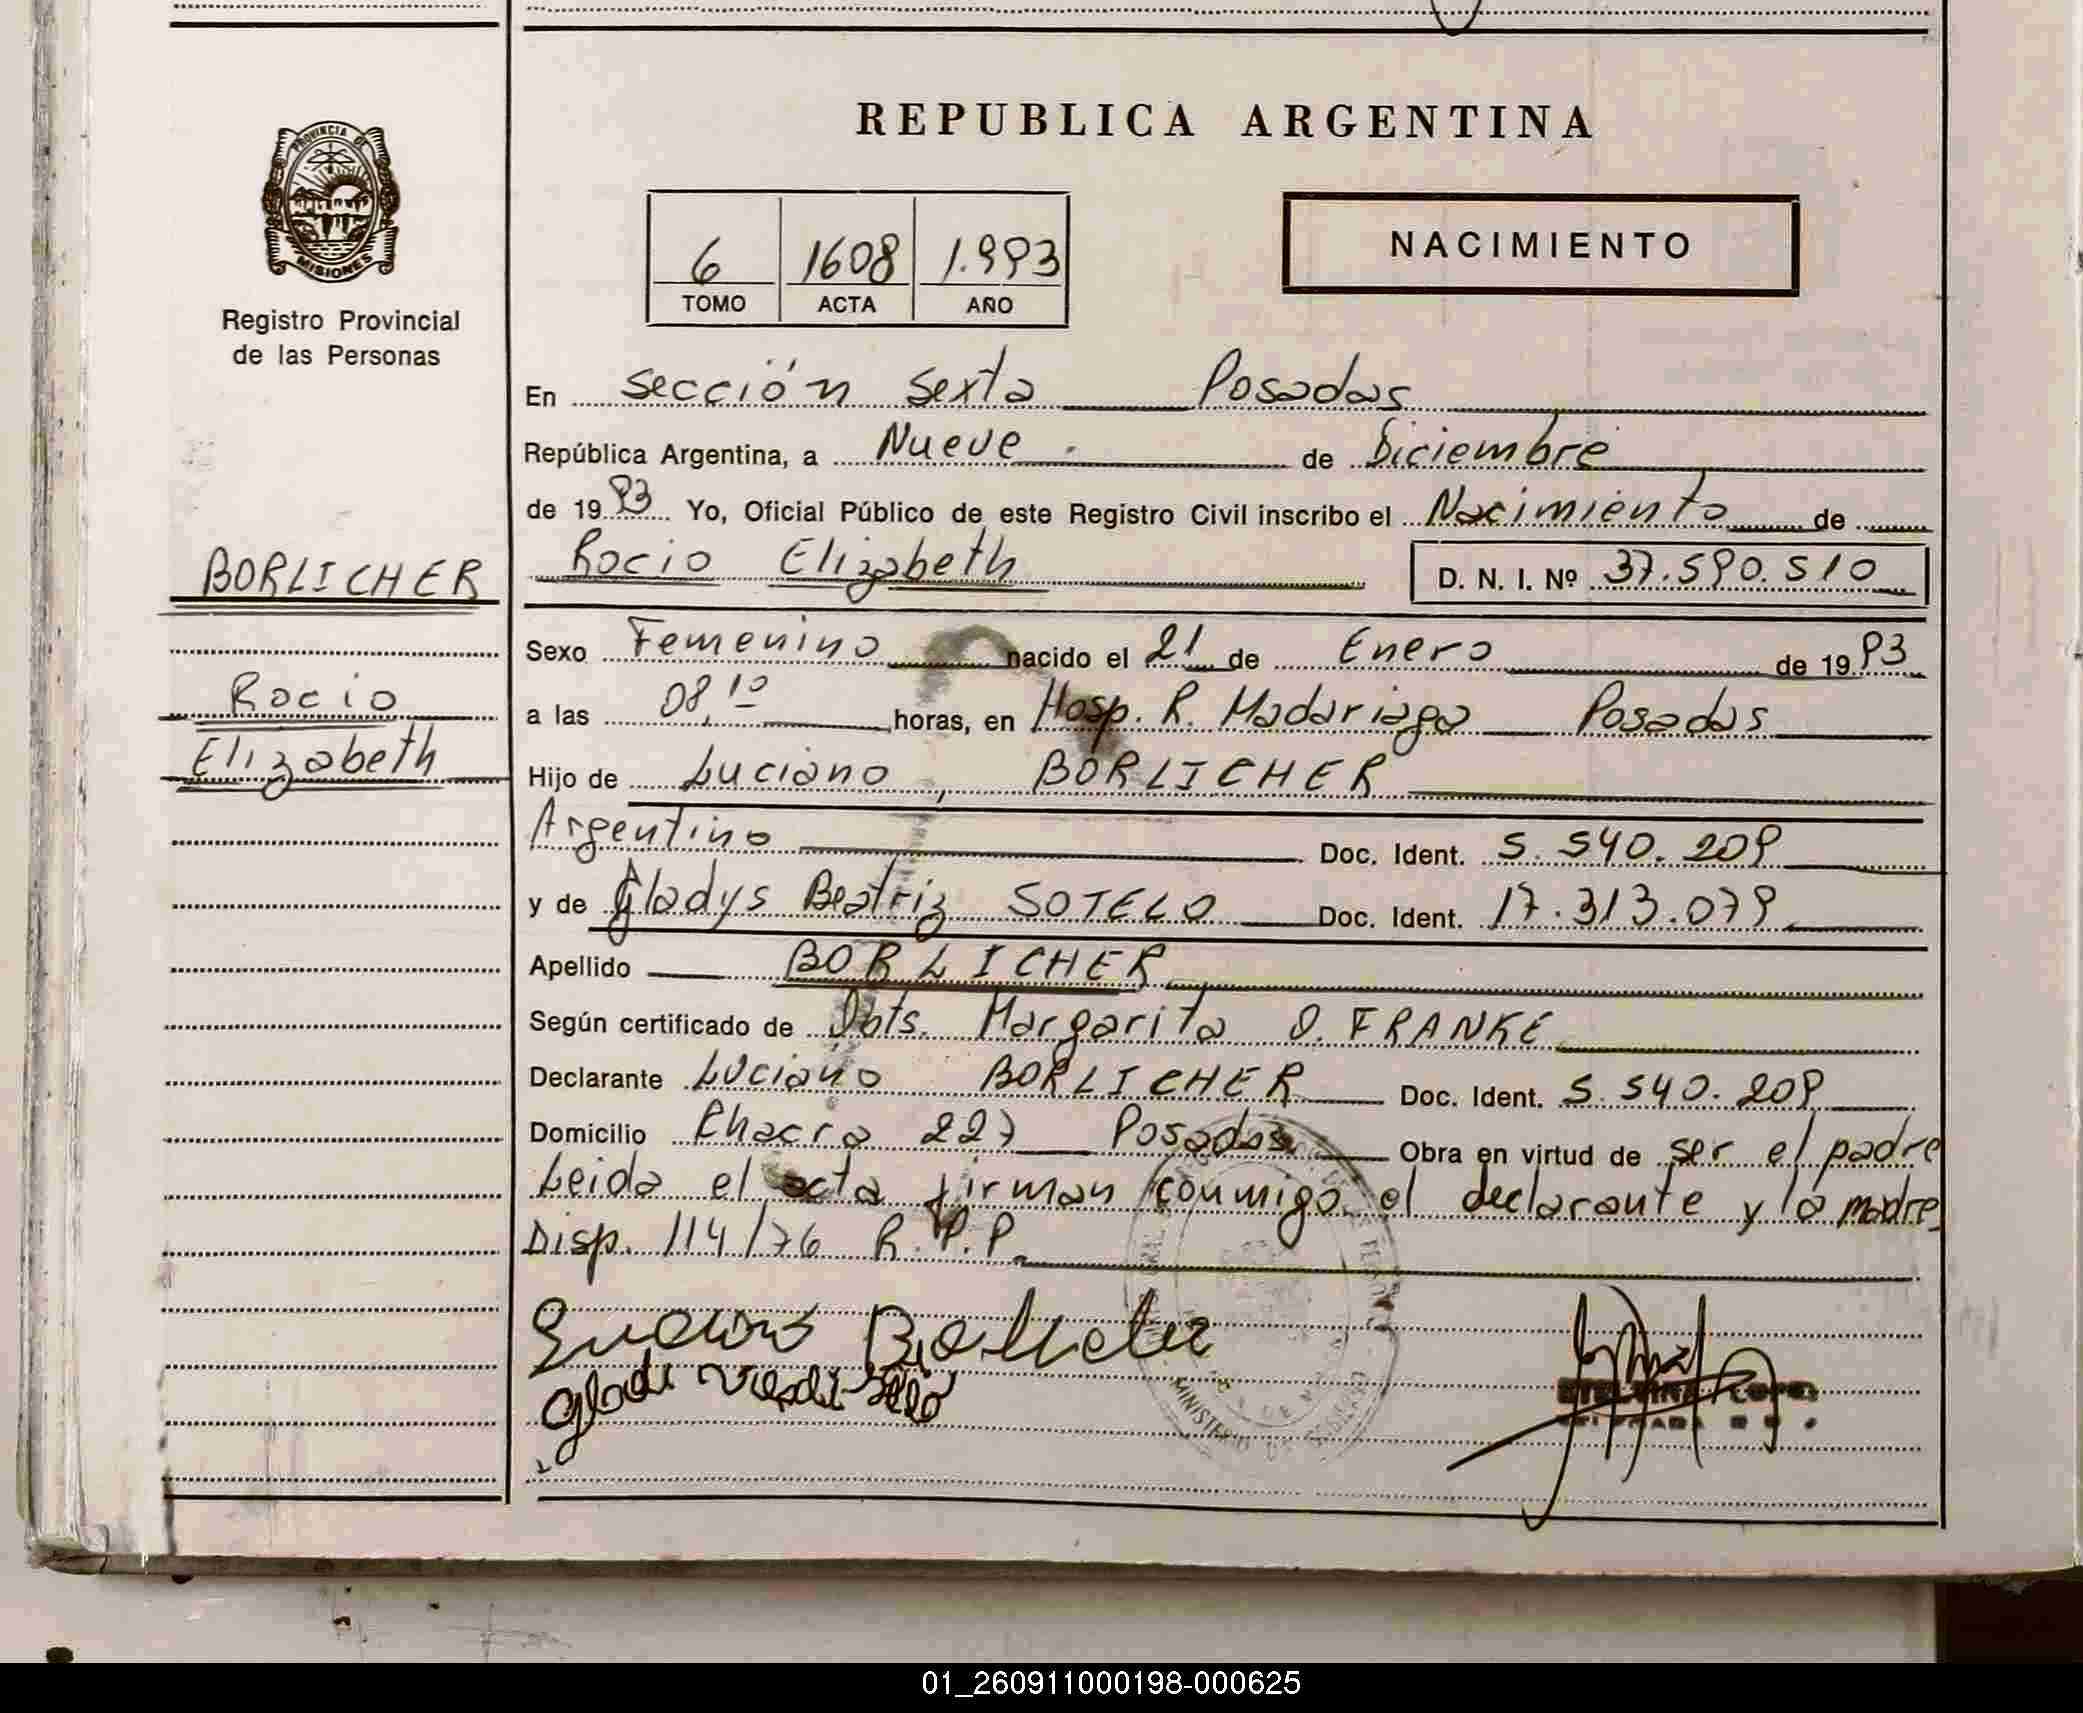 REPUBLICA ARGENTINA
PROVINCIA DE
MISIONES
Registro Provincial
de las Personas
6 1608 1.993
TOMO ACTA AÑO
NACIMIENTO
En sección Sexta Posadas
República Argentina, a Nueve de Diciembre
de 1993 Yo, Oficial Público de este Registro Civil inscribo el Nacimiento de
BORLICHER
Rocio Elizabeth D. N. I. Nº 37.590.510
Sexo Femenino nacido el 21 de Enero de 1993
Rocio
a las 08,10 horas, en Hosp. R. Madariaga Posadas
Elizabeth
Hijo de Luciano BORLICHER
Argentino Doc. Ident. 5.540.209
y de Gladys Beatriz SOTELO Doc. Ident. 17.313.079
Apellido BORLICHER
Según certificado de Obts. Margarita O. FRANKE
Declarante Luciano BORLICHER Doc. Ident. 5.540.209
Domicilio Chacra 227 Posadas Obra en virtud de ser el padre
Leida el acta firman conmigo el declarante y la madre
Disp. 114/76 R.P.P.
MINISTERIO DE
01_260911000198-000625